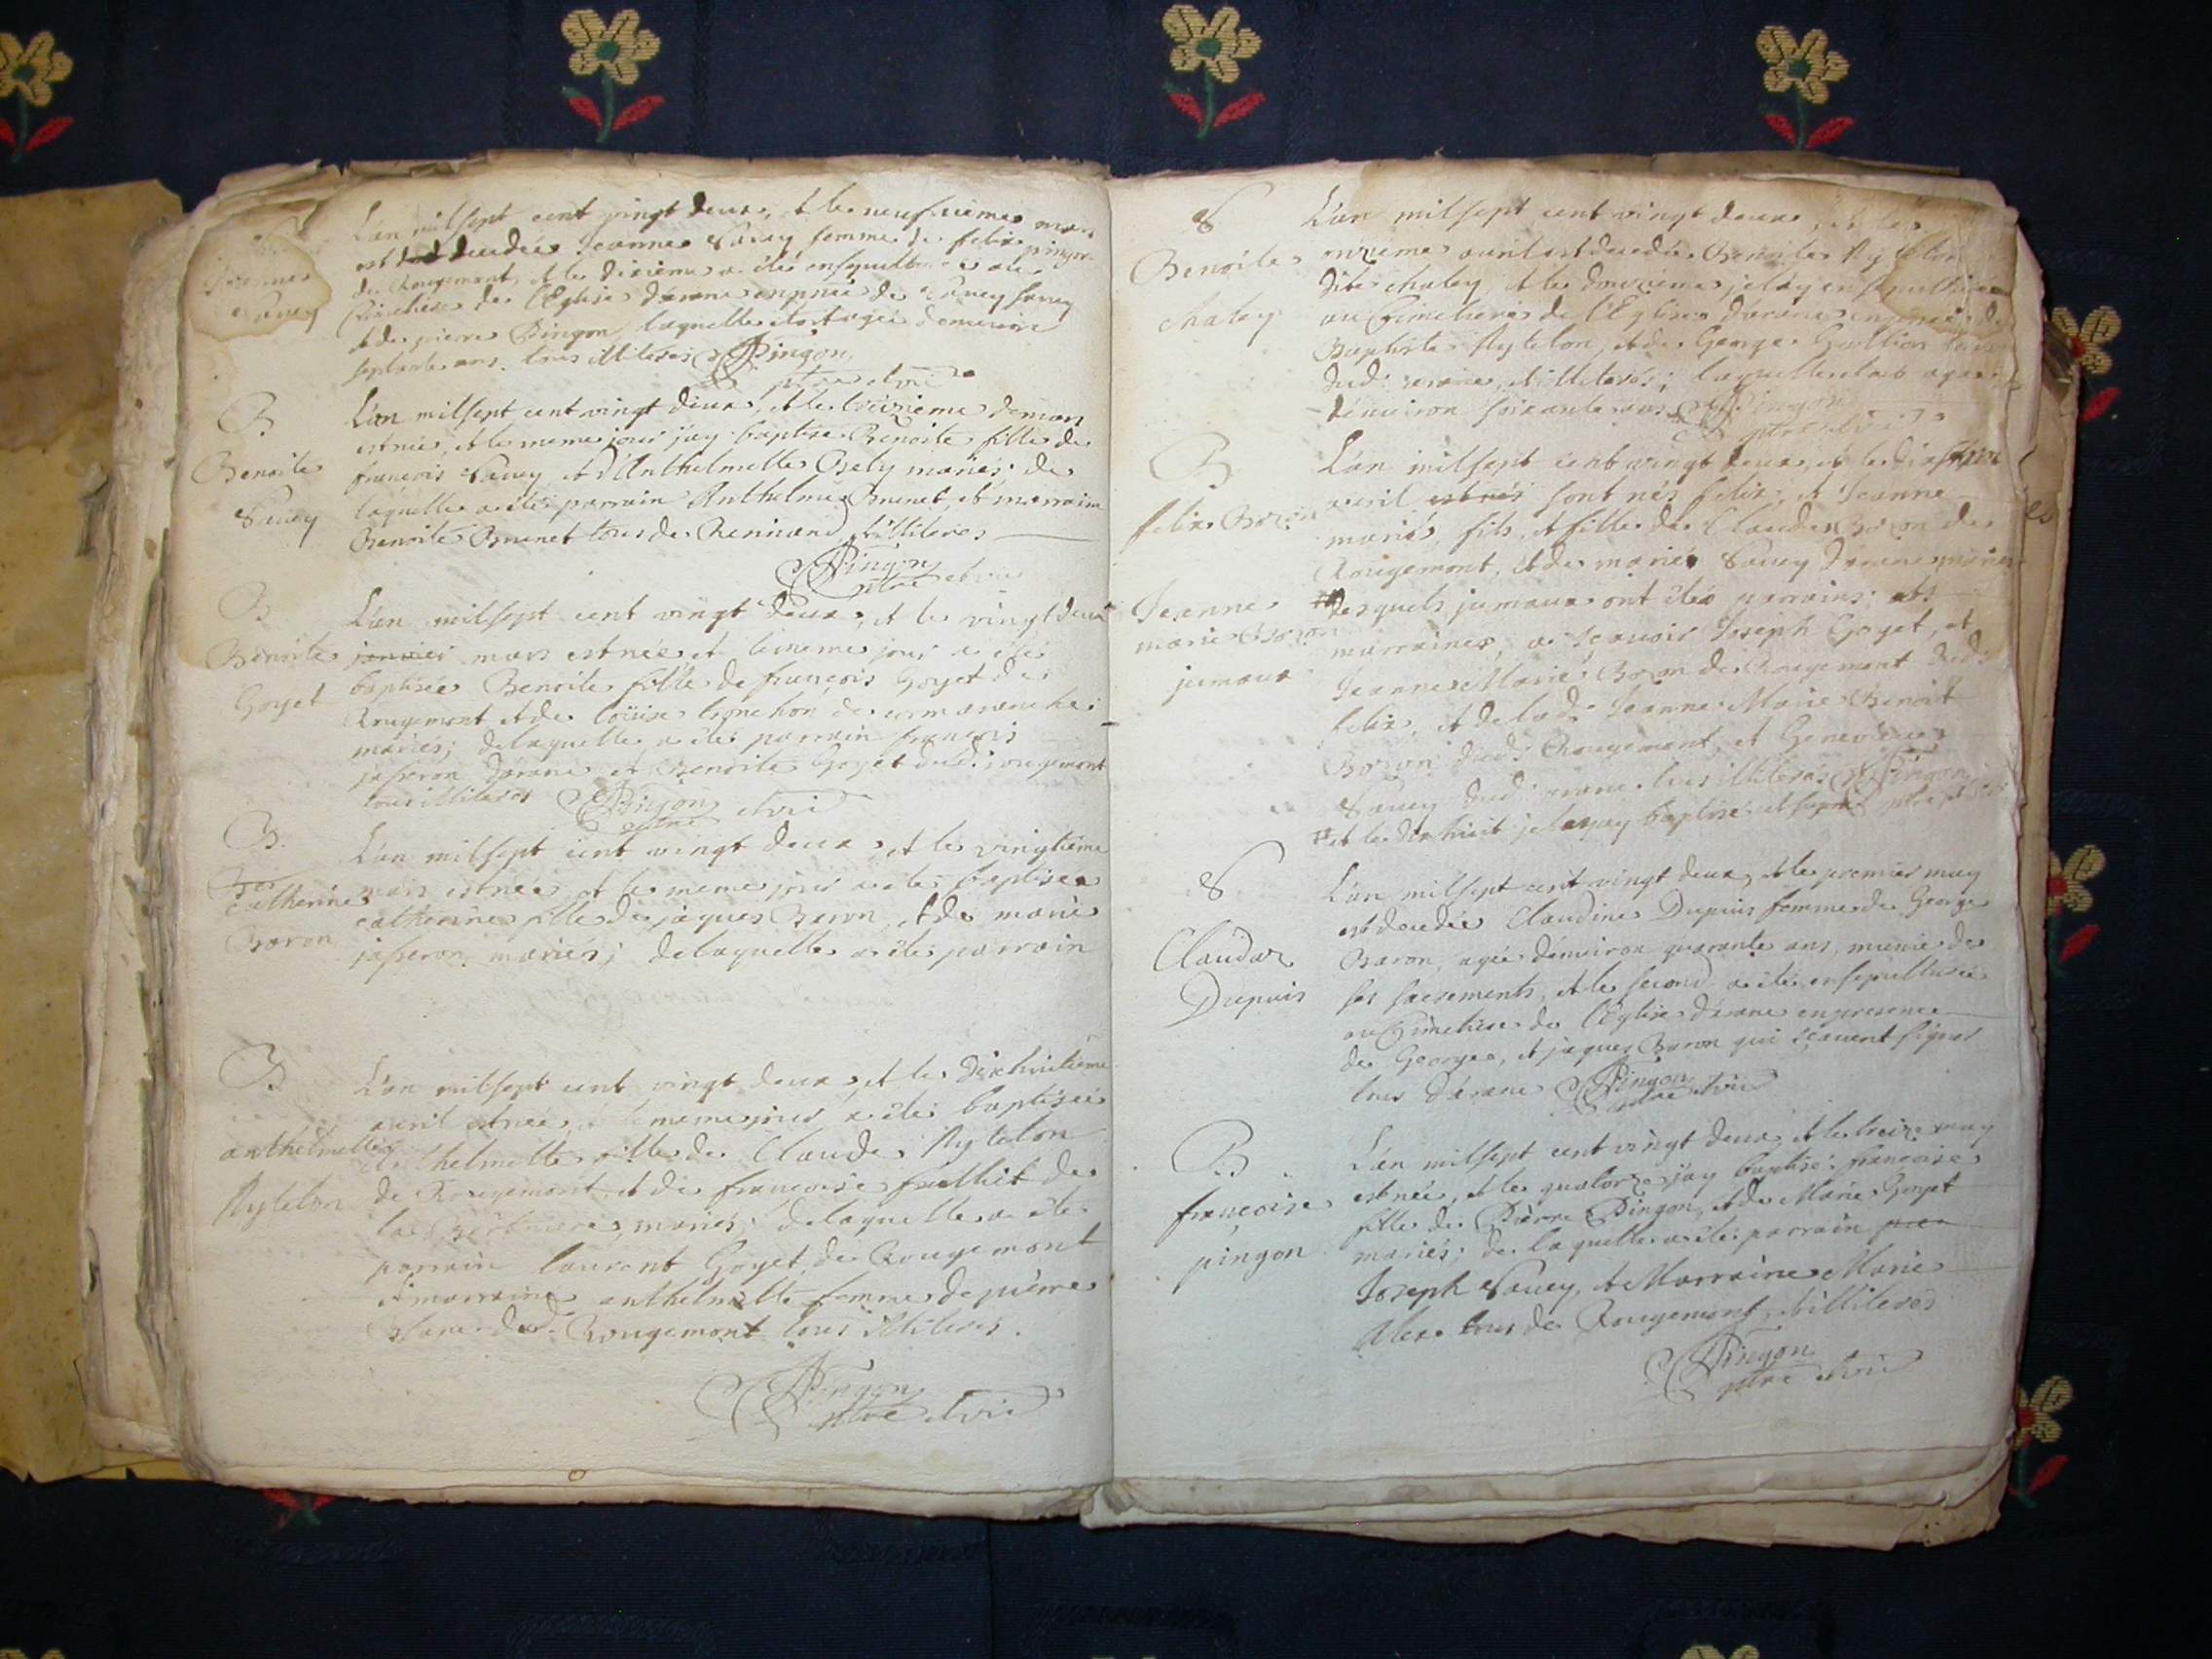 Jeanne
Savey
L'an mil sept cent vingt deux, et le neufvieme mars
est decedée Jeanne Savey femme de felix pingon
de Rougemont, et le dixieme a été ensepulturée au
Cimetiere de l'Eglise d'arane en pnce de Savey
et de pierre Pingon laquelle étoit agée d'environ
septante ans. tous illiteres Pingon
ptre et vic
B
Benoite
Savey
L'an mil sept cent vingt deux, et le treizieme de mars
est née, et le meme jour j'ay baptisé Benoite fille de
francois Savey, et d'Anthelmette mariés; de
laquelle a été parrain Anthelme Brunet, et marraine
Benoite Brunet tous de Rennand, illiteres
Pingon
ptre et vic
B
Benoite
Goyet
L'an mil sept cent vingt deux, et le vingt deux
janvier mars est née, et le meme jour a été
baptisée Benoite fille de francois Goyet de
Rougemont et de loüise tronchon de cormaranche
mariés; de laquelle a été parrain francois
jasseron d'arane et Benoite Goyet dud. rougemont
tous illiteres Pingon
ptre et vic
B.
Catherine
Baron
L'an mil sept cent vingt deux, et le vingtieme
mars est née, et le meme jour a été baptisée
catherine fille de jaques Baron, et de marie
jasseron mariés; de laquelle a été parrain
B
anthelmette
Mytelon
L'an mil sept cent vingt deux, et le dixhuitieme
avril est née, et le meme jour a été baptisée
anthelmette fille de Claude Mytelon
de Rougemont, et de francoise de
mariés; de laquelle a été
parrain laurent Goyet de Rougemont
et marraine anthelmette femme de pierre
dud. Rougemont tous illiteres.
Pingon
ptre et vic
S
Benoite
chaley
L'an mil sept cent vingt deux, et le
onzieme avril est decedée Benoite Mytelon
dite chaley, et le douzieme je l'ay ensepulturée
au Cimetiere de l'Eglise d'arane en pnce de
Baptiste Mytelon, et de George Guillion tous
dud. arane, et illiterés; laquelle étoit agée
d'environ soixante ans Pingon
ptre et vic
B
felix Bozon
Jeanne
marie Bozon
jumaux
L'an mil sept cent vingt deux, et le dix sept
avril est nés sont nés felix, et Jeanne
marie, fils, et fille de Claude Bozon de
Rougemont, et de marie Savey d'arane mariés
# desquels jumaux ont étés parrains, et
marraines, a sçavoir Joseph Goyet, et
Jeanne Marie Bozon de Rougemont dud.
felix, et de lad. Jeanne Marie Benoit
Bozon dud. Rougemont, et Genevieve
Savey dud. arane tous illiterés Pingon
# et le dix huit je les ay baptisé ptre et vic
S
Claudaz
Dupuis
L'an mil sept cent vingt deux, et le premier may
est decedée Claudine Dupuis femme de George
Baron, agée d'environ quarante ans, munie de
ses sacrements, et le second a été ensepulturée
au Cimetiere de l'Eglise d'arane en presence
de George, et jaques Baron qui sçavent signer
tous d'arane Pingon
ptre et vic
B.
francoise
pingon
L'an mil sept cent vingt deux, et le treize may
est née, et le quatorze j'ay baptisé francoise
fille de Pierre Pingon, et de Marie Goyet
mariés; de laquelle a été parrain
Joseph Savey, et Marraine Marie
tous de Rougemont, et illiteres
Pingon
ptre et vic